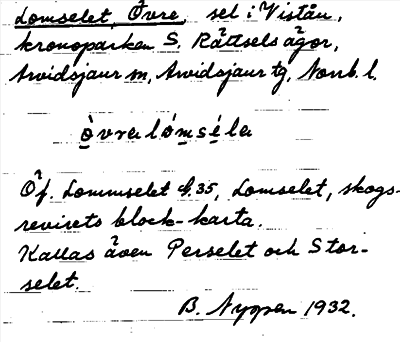 Lomselet, Övre, sel i Vistån,
kronoparken S. Rättsels ägor,
Arvidsjaur sn, Arvidsjaur tg, Norrb. l.
òvralómséla
Öf. Lommselet 35, Lomselet, skogs-
revirets block-karta.
Kallas även Perselet och Stor-
selet.
B. Nygren 1932.